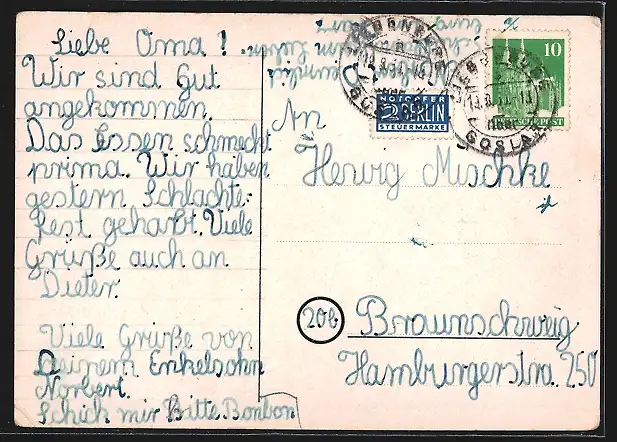 Liebe Oma!
Wir sind Gut
angekommen.
Das Essen schmeckt
prima. Wir haben
gestern Schlachte-
fest gehabt. Viele
Grüße auch an
Dieter.
Viele Grüße von
deinem Enkelsohn
Norbert.
Schick mir Bitte Bonbon
An
Herwig Mischke
20b Braunschweig
Hamburgerstra. 250
NOTOPFER
2 BERLIN
STEUERMARKE
10
DEUTSCHE POST
GOSLAR